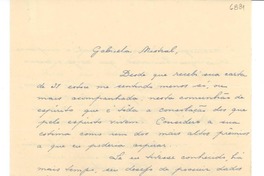 6831
Gabriela Mistral,
Desde que recebi sua carta
de 31 estou me sentindo menos só, ou
mais acompanhada, nesta comunhão de
espírito que é toda a consolação dos que
pelo espírito vivem. Considero a sua
estima como um dos mais altos prêmios
a que eu poderia aspirar.
Se eu tivesse conhecido, há
mais tempo, seu desejo de possuir dados